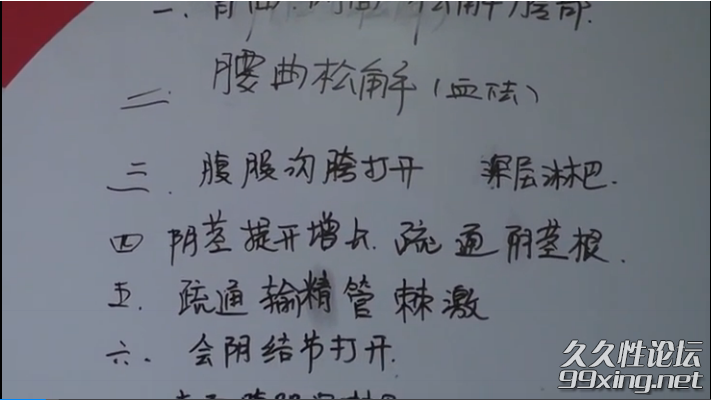 一、背面、侧面、松解 腰部.
二. 腰曲松解(血法)
三. 腹股沟胯打开 深层淋巴.
四 阴茎提开增长. 疏通阴茎根.
五. 疏通输精管棘激
六. 会阴结节打开.
久久性论坛
99xing.net